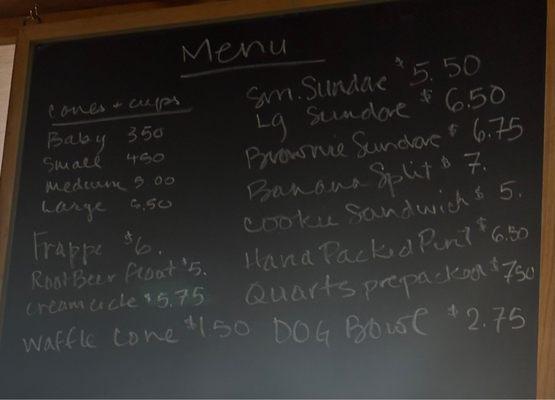 Menu
cones + cups
Baby 350
Small 450
medium 5 00
Large 5,50
Frappe $6.
Root Beer float $5.
creamcicle $5.75
waffle cone $1.50
Sm. Sundae $5.50
Lg Sundae $6.50
Brownie Sundae $6.75
Banana Split $7.
cookie Sandwich $5.
Hand Packed Pint $6.50
Quarts prepacked $750
DOG BOWL $2.75